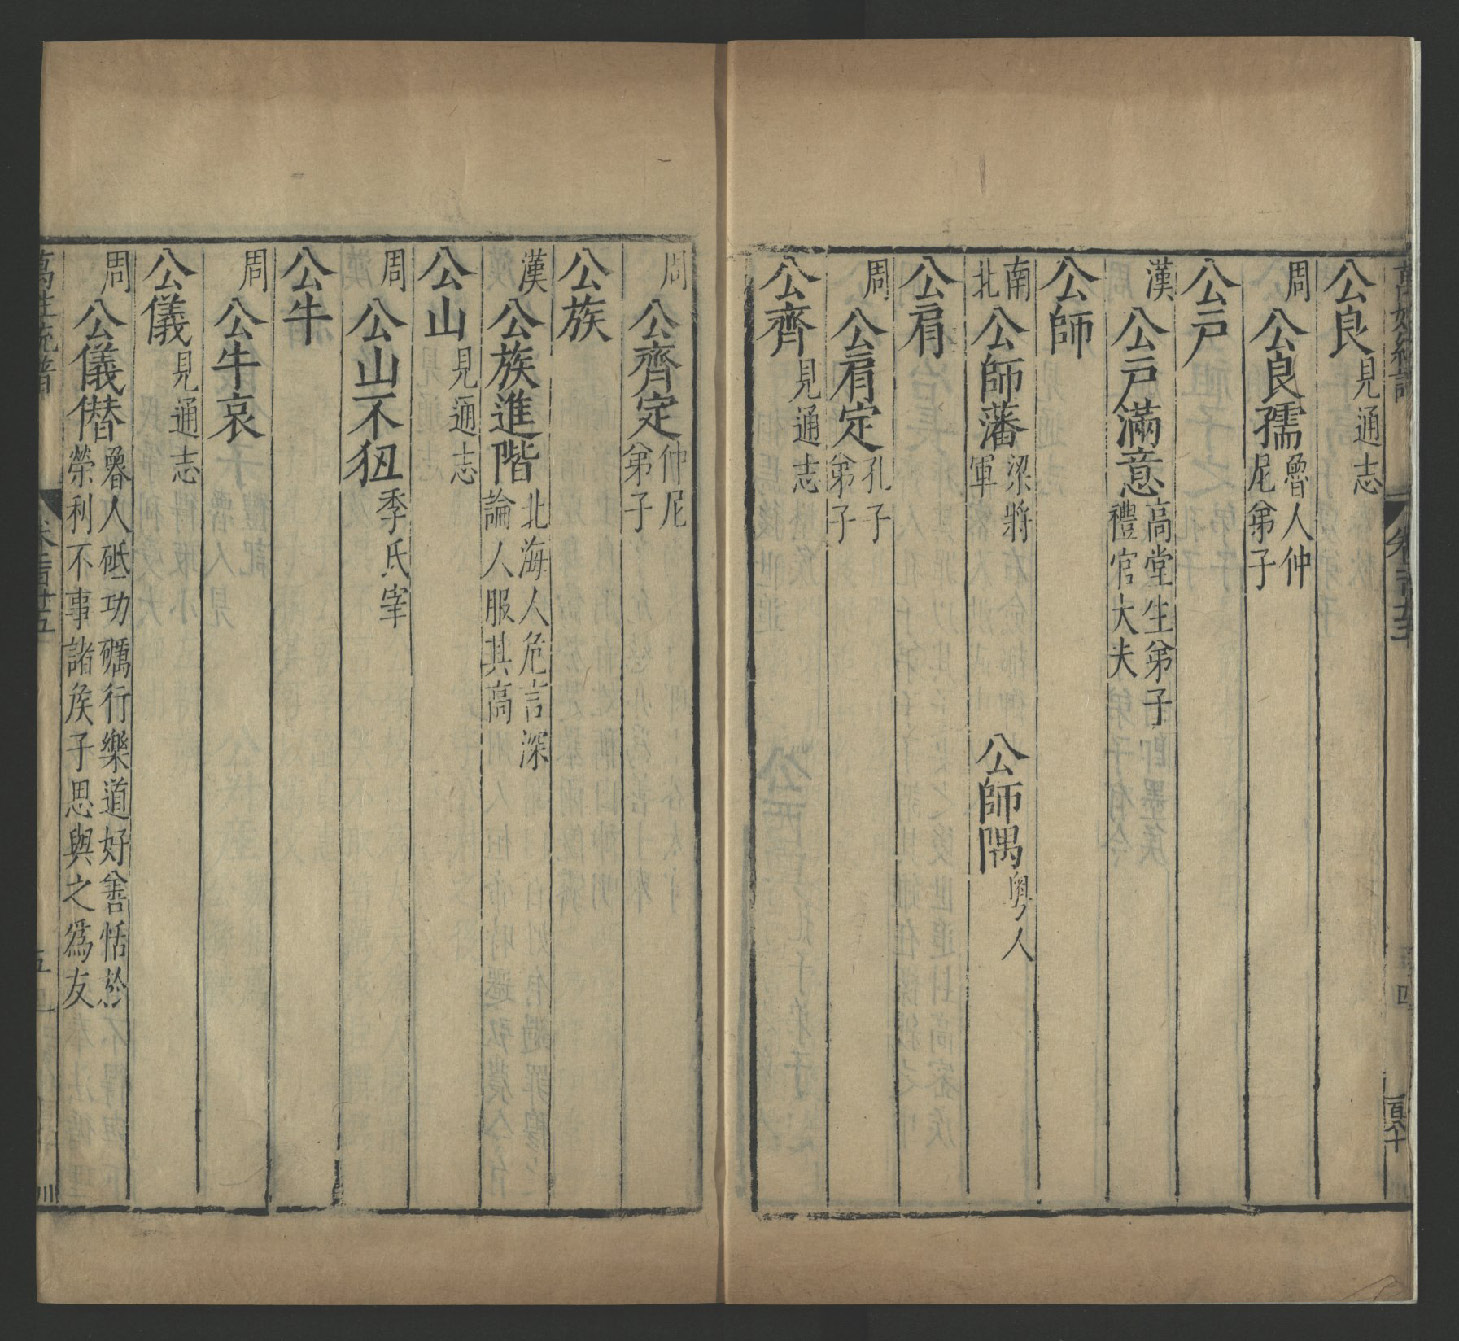 公良見通志
周公良孺魯人仲尼弟子
公戸
漢公戸滿意高堂生弟子禮官大夫
公師
南北公師藩梁將軍 公師隅粵人
公肩
周公肩定孔子弟子
公齊見通志
周公齊定仲尼弟子
公族
漢公族進階北海人危言深論人服其高
公山見通志
周公山不狃季氏宰
公牛
周公牛哀
公儀見通志
周公儀僭魯人砥功礪行樂道好善恬於榮利不事諸侯子思與之爲友
萬姓統譜